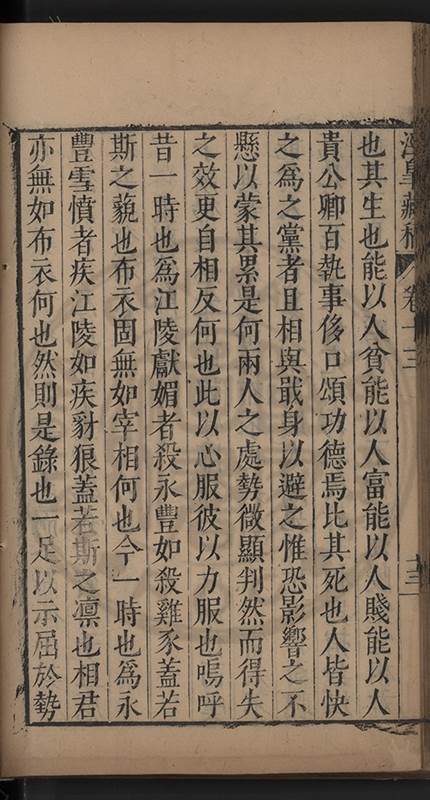 涇皐藏稿 卷十三 十三
也其生也能以人貧能以人富能以人賤能以人
貴公卿百執事侈口頌功德焉比其死也人皆快
之為之黨者且相與戢身以避之惟恐影響之不
懸以蒙其累是何兩人之處勢微顯判然而得失
之效更自相反何也此以心服彼以力服也嗚呼
昔一時也為江陵獻媚者殺永豐如殺雞豕蓋若
斯之藐也布衣固無如宰相何也今一時也為永
豐雪憤者疾江陵如疾豺狼蓋若斯之凛也相君
亦無如布衣何也然則是錄也一足以示屈於勢